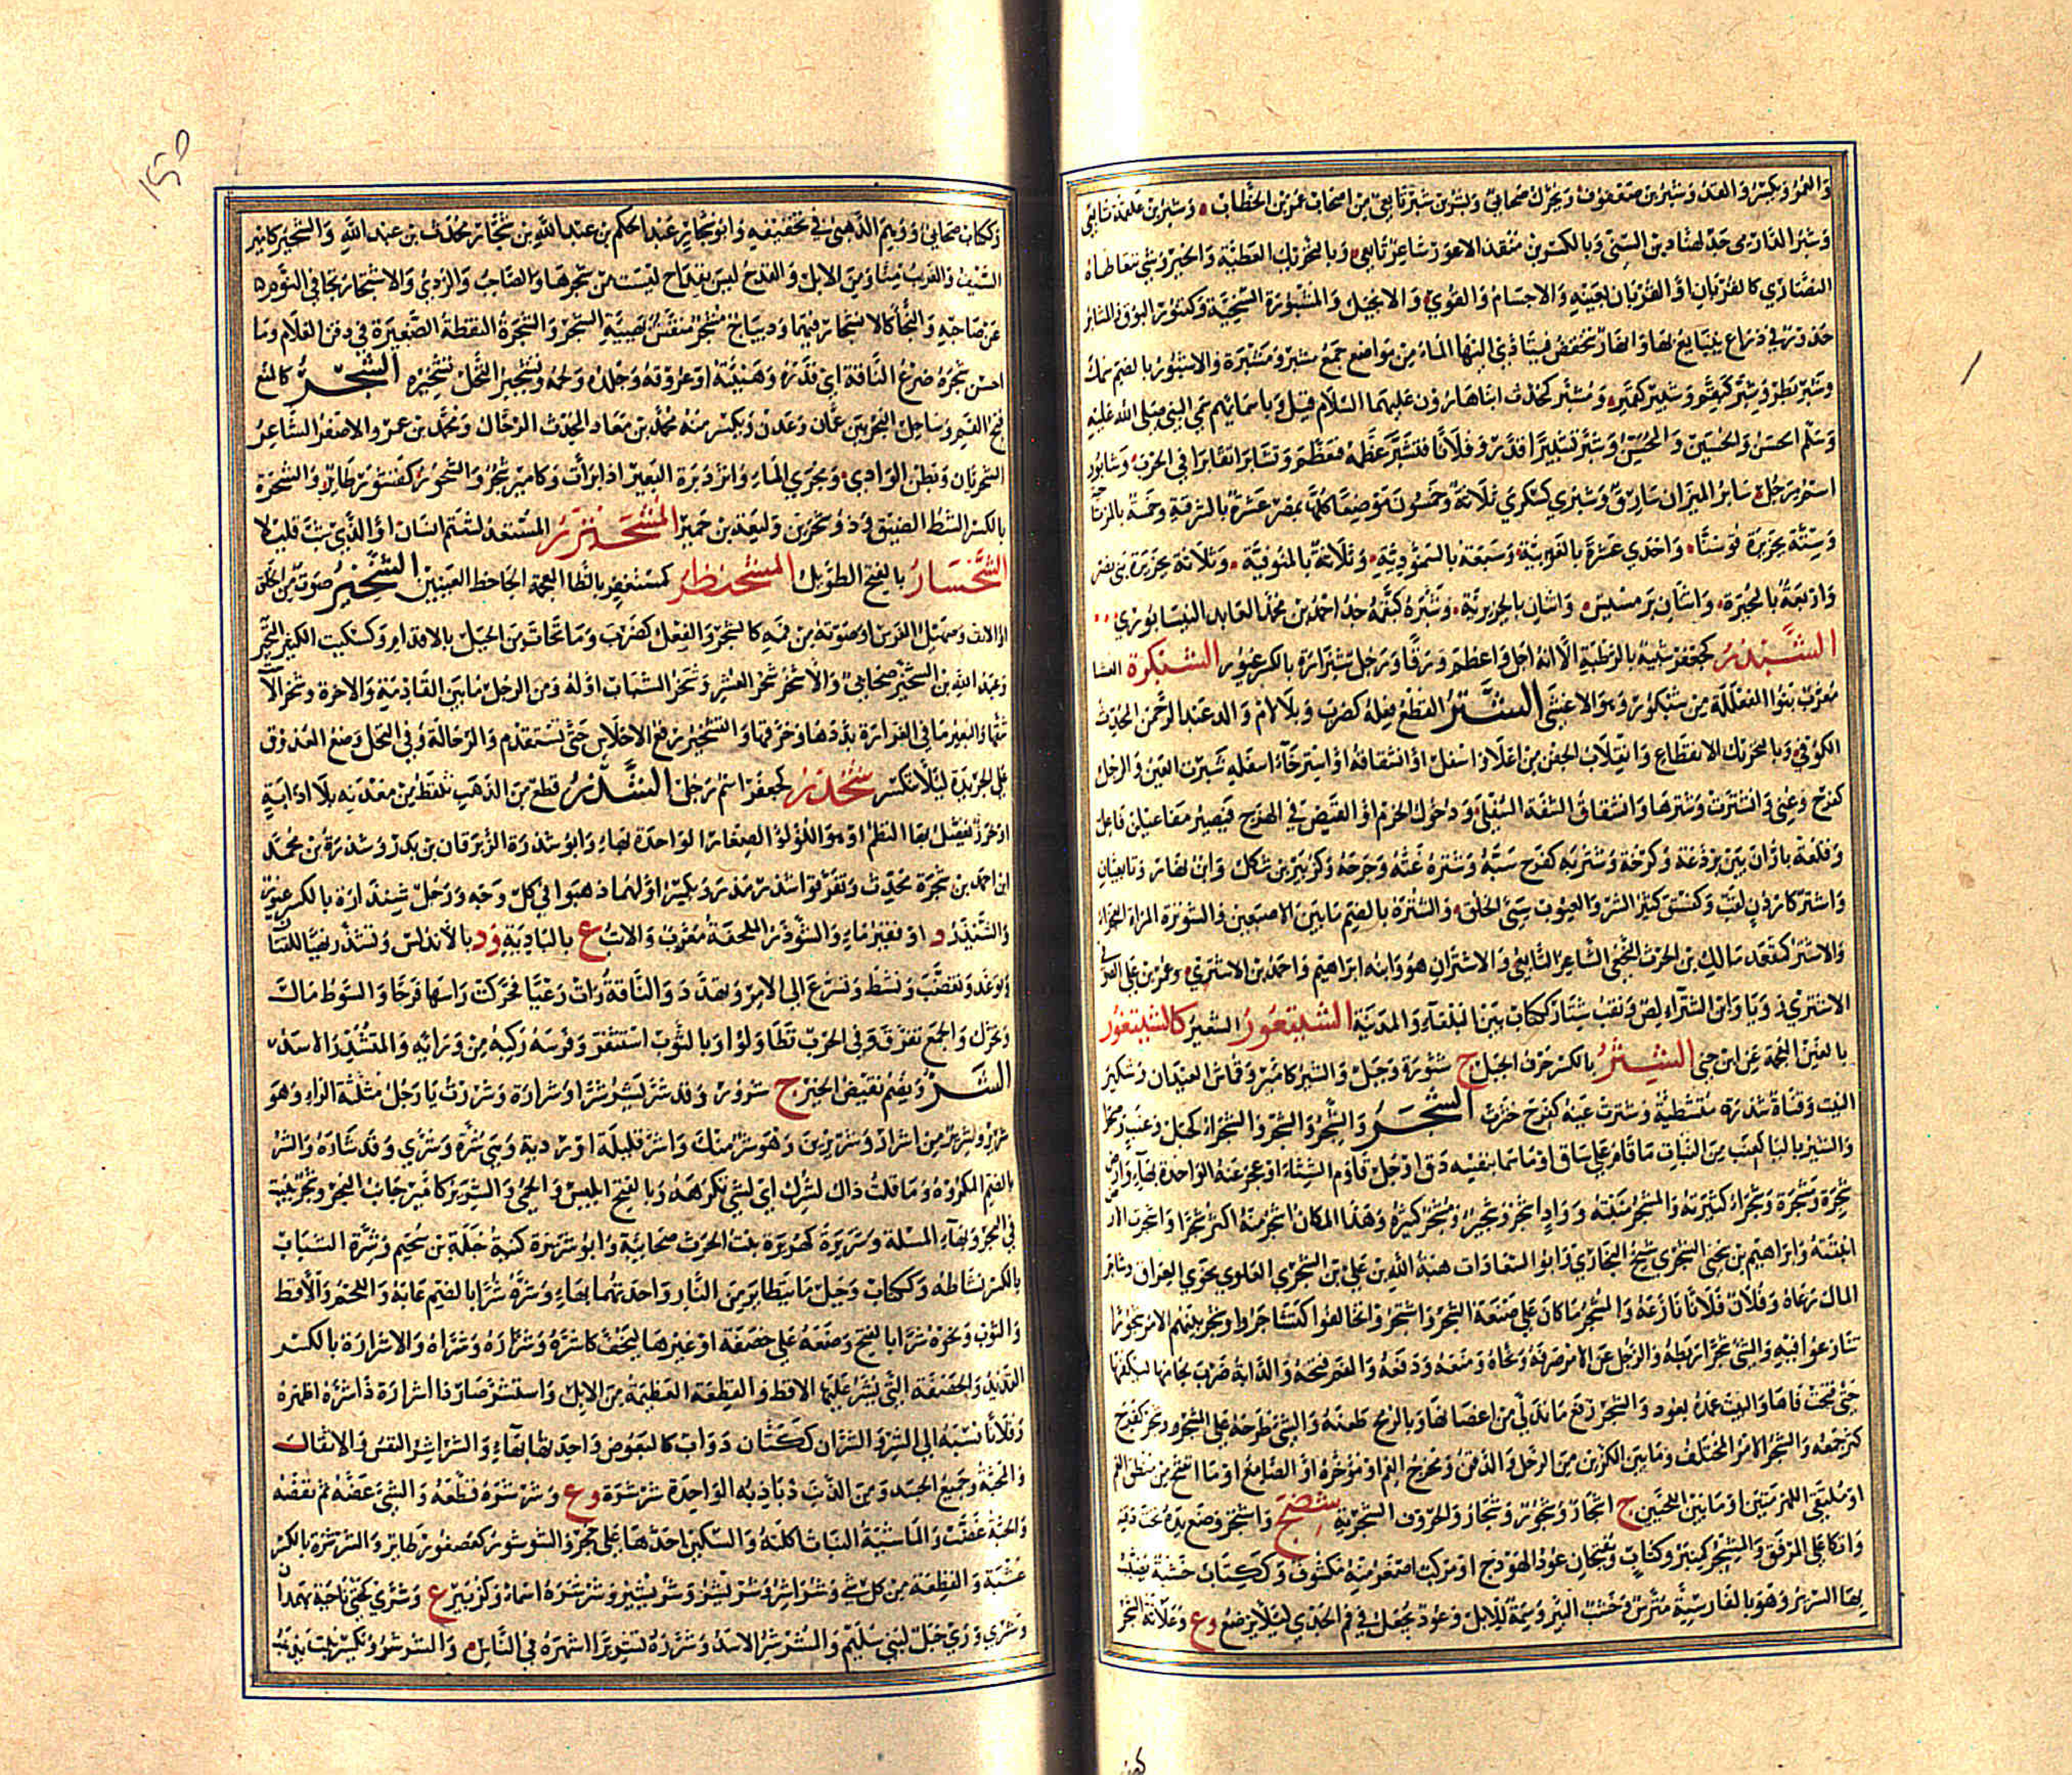 والعمر ويكسر والقد وشبر بن صعفوق ويحرك صحابي وبشر بن شبر تابعي من اصحاب عمر بن الخطاب وشبر بن علقمة تابعي
وشبر الدارمي جد لهناد بن السري وبالكسر بن منقذ الاعور شاعر تابعي وبالتحريك العطية والخير وشي تتعاطاه
النصاري كالقربان او القربان بعينه والاجسام والقوي والانجيل والمشبورة السخية وكتنور البوق والمشابر
حزوز في ذراع يتبايع بها وانهار تنخفض فيتادي اليها الماء من مواضع جمع مشبر ومشبرة والاشبور بالضم سمك
وشبر بطر وشبر كبقم وشبير كقمير ومشبر كمحدث ابناء هارون عليهما السلام قيل وباسمائهم سمي النبي صلى الله عليه
وسلم الحسن والحسين والمحسن وشبر تشبيرا قدر وفلانا فتشبر عظمه فتعظم وتشابرا تقاربا في الحرب وشابور
اسم رجل شابر الميزان سارق وشبري كسكري ثلاثة وخمسون موضعا كلها بمصر عشرة بالشرقية وخمسة بالمرتاحية
وستة بجزيرة قوسنيا واحدي عشرة بالغربية وسبعة بالسمنودية وثلاثة بالمنوفية وثلاثة بجزيرة بني نصر
واربعة بالبحيرة واثنان برمسيس واثنان بالجيزية وشبرة كبقمة جد احمد بن محمد العابد النيسابوري
الشبذر كجعفر شبيه بالرطبة الا انه اجل واعظم ورقا ورجل شبذارة بالكسر غيور الشبكرة العشا
معرب بنوا الفعللة من شبكور وهو الاعشى الشتر القطع فعله كضرب وبلا لام والد عبد الرحمن المحدث
الكوفي وبالتحريك الانقطاع وانقلاب الجفن من اعلا واسفل او انشقاقه او استرخآء اسفله شترت العين والرجل
كفرح وعني وانشترت وشترها وانشقاق الشفة السفلي ودخول الخرم او القبض في الهزج فيصير مفاعيلن فاعلن
وقلعة باران بين برذعة وكنجة وشتر به كفرح سبه وشتره غته وجرحه وكزبير بن شكل وابن نهار وتابعيان
والاشتر كمقعد مالك بن الحرث النخعي الشاعر التابعي والاشتران هو وابنه ابراهيم واحمد بن الاشتري وعمر بن علي
الاشتري رويا وابن الشترآء لص ونقب شتار ككتاب بين البلقآء والمدينة الشيتعور الشعير كالشيتغور
بالغين المعجمة عن ابن جني الشثر بالكسر حرف الجبل ج شثور وجبل والشثير كامير قماش العيدان وشكير
النبت وقناة شثرة متشظية وشثرت عينه كفرح خثرت الشجر والشجر والشجر والشجراء كجبل وعنب وصحراء
والشير بالياء كعنب من النبات ما قام علي ساق او ما سما بنفسه دق او جل قاوم الشتاء او عجز عنه الواحدة بهاء وارض
شجرة وشجيرة وشجراء كثيرته والمشجر منبته وواد اشجر وشجير ومشجر كثيره وهذا المكان اشجر منه اكثر شجرا واشجرت الارض
انبتته وابراهيم بن يحيى الشجري شيخ البخاري وابو السعادات هبة الله بن علي بن الشجري العلوي نحوي العراق وشاجر
المال رعاه وفلان فلانا نازعه والشجر ما كان علي صنعة الشجر واشتجروا تخالفوا كتشاجروا وشجر بينهم الامر شجورا
تنازعوا فيه والشي شجرا ربطه والرجل عن الامر صرفه ونحاه ومنعه ودفعه والفم فتحه والدابة ضرب لجامها ليكفها
حتي فتحت فاها والبيت عمده بعود والشجر رفع ما تدلي من اغصانها وبالرمح طعنه والشي طرحه علي الشجر وشجر كفرح
كثر جمعه والشجر الامر المختلف وما بين الكرين من الرحل والذقن ومخرج الفم او مؤخره او الصامغ او ما انفتح من منطبق الفم
او ملتقى اللهزمتين او ما بين اللحيين ج اشجار وشجور وشجار والحروف الشجرية شضج واشتجر وضع يده تحت ذقنه
واتكا علي المرفق والمشجر كمنبر وكتاب ويفتحان عود الهودج او مركب اصغر منه مكشوف وككتاب خشبة يضبب
بها السرير وهو بالفارسية مترس وخشب البئر وسمة للابل وعود يجعل في فم الجدي ليلا يرضع وع وعلاثة الشجر
وككتاب صحابي ووهم الذهبي في تخفيفه وابو شجار عبد الحكم بن عبد الله بن شجار محدث بن عبد الله والشجير كامير
السيف والغريب منا ومن الابل والقدح ليس بقداح ليست من شجرها والصاحب والردي والاشتجار تجافي النوم
عن صاحبه والنجاء كالانشجار فيهما وديباج مشجر منقش بهيئة الشجر والشجرة النقطة الصغيرة في ذقن الغلام وما
احسن شجرة ضرع الناقة اي قدره وهيئته او عروقه وجلده ولحمه وتشجير النخل تشخيره الشحر كالمنع
فتح الفم وساحل البحر بين عمان وعدن ويكسر منه محمد بن معاذ المحدث الرحال ومحمد بن عمر والاصغر الشاعر
الشحريان وبطن الوادي ومجري الماء واثر دبرة البعير اذا برات وكامير شجر والشحور كقسور طائر والشحرة
بالكسر الشط الضيق وذو شحر بن وليعة بن حمير المشحنزر المستعد لشتم انسان او الذي شب قليلا
الشحنسار بالفتح الطويل المشحنظر كمستغفر بالظا المعجمة الجاحظ العينين الشخير صوت من الحلق
او الانف وصهيل الفرس او صوته من فمه كالشخر والفعل كضرب وما تحات من الجبل بالاقدام وكسكيت الكثير النخير
وعبد الله بن الشخير صحابي والاشخر شجر العشر وشخر الشباب اوله ومن الرحل ما بين القادمة والاخرة وشخر الا
ستها والبعير ما في الغرارة بددها وخرقها والتشخير رفع الاحلاس حتي تستقدم والرحالة وفي النخل وضع العذوق
علي الجريدة ليلا تنكسر شخدر كجعفر اسم رجل الشذر قطع من الذهب تلقط من معدنه بلا اذابة
او خرز يفصل بها النظم او هو اللؤلؤ الصغار الواحدة بهاء وابو شذرة الزبرقان بن بدر وشذرة بن محمد
ابن احمد بن شجرة محدث وتفرقوا شذر مذر ويكسر اولهما ذهبوا في كل وجه ورجل شيذارة بالكسر غيور
والشيذر د او فقير ماء والشوذر الملحفة معرب والاتب ع بالبادية ود بالاندلس وتشذر تهيا للقتال
وتوعد وتغضب ونشط وتسرع الي الامر وتهدد والناقة رات رعيا فحركت راسها فرحا والسوط مال
وتحرك والجمع تفرق وفي الحرب تطاولوا وبالثوب استثفر وفرسه ركبه من وراءه والمتشذر الاسد
الشر ويضم نقيض الخير ج شرور وقد شر يشر ويشر شرا وشرارة وشررت يا رجل مثلثة الراء وهو
شرير وشرير من اشرار وشريرين وهو شر منك واشر قليلة او ردية وهي شرة وشري وقد شاره والشر
بالضم المكروه وما قلت ذاك لشرك اي لشي تكرهه وبالفتح ابليس والحمي والشرير كامير جانب البحر وشجر ينبت
في البحر وبهاء المسلة وشريرة كهريرة بنت الحرث صحابية وابو شريرة كنية جبلة بن سحيم وشرة الشباب
بالكسر نشاطه وككتاب وجبل ما يتطاير من النار واحدتهما بهاء وشره شرا بالضم عابه واللحم والاقط
والثوب ونحوه شرا بالفتح وضعه علي خصفة او غيرها ليجف كاشره وشرره وشراه والاشرارة بالكسر
القديد والخصفة التي يشر عليها الاقط والقطعة العظيمة من الابل واستشر صار ذا اشرارة واشره اظهره
وفلانا نسبه الي الشر والشران ككتان دواب كالبعوض واحدتها بهآء والشراشر النفس والاثقال
والمحبة وجميع الجسد ومن الذنب ذباذبه الواحدة شرشرة وع وشرشره قطعه والشي عضه ثم نفضه
والحية عضت والماشية النبات اكلته والسكين احدها علي حجر والشرشور كعصفور طائر والشرشرة بالكسر
عشبة والقطعة من كل شي وشواشر وشرشر وشرشير وشرشرة اسماء وكزبير ع وشري كحتي ناحية بهمدان
وشري وري جبل لبني سليم والشرشر الاسد وشرره تشريرا شهره في الناس والشرشر ويكسر نبت